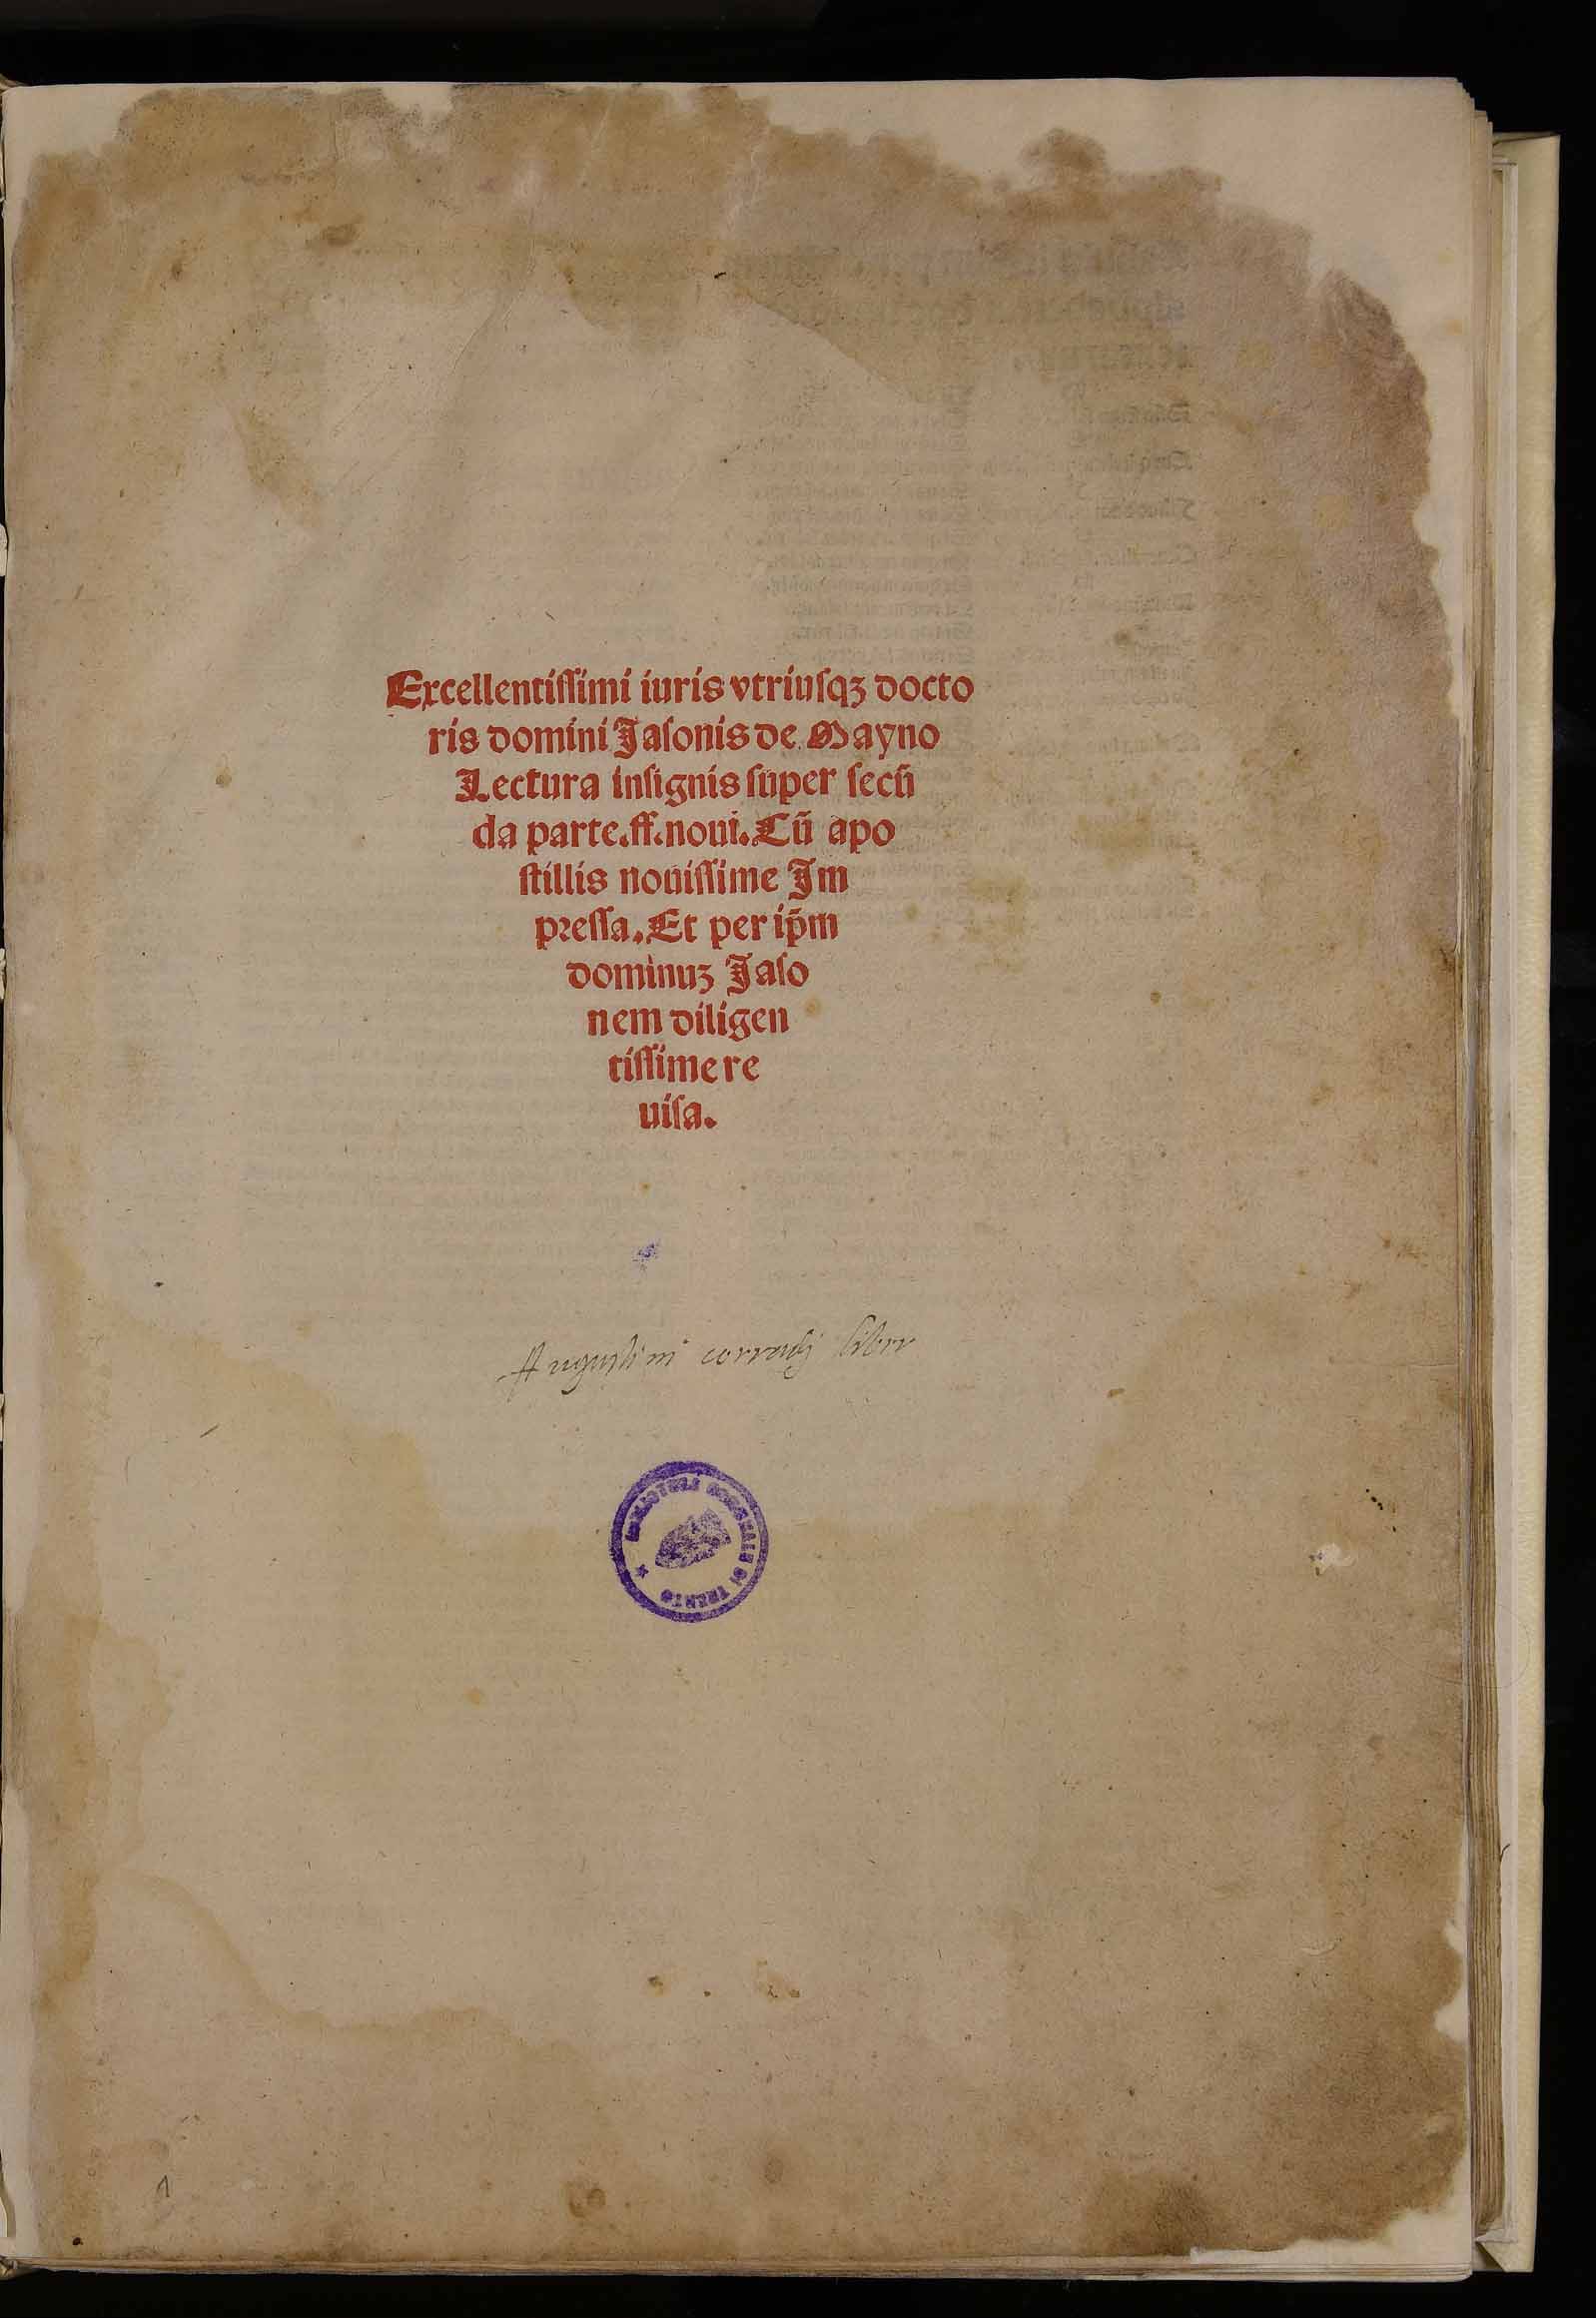 Excellentiſſimi iuris vtriuſqꝫ docto
ris domini Jaſonis de Mayno
Lectura inſignis ſuper ſecū
da parte.ff.noui.Cū apo
ſtillis nouiſſime Im
preſſa.Et per ip̄m
dominuꝫ Jaſo
nem diligen
tiſſime re
uiſa.
Augustini corradj liber
BIBLIOTECA COMUNALE DI TRENTO
1